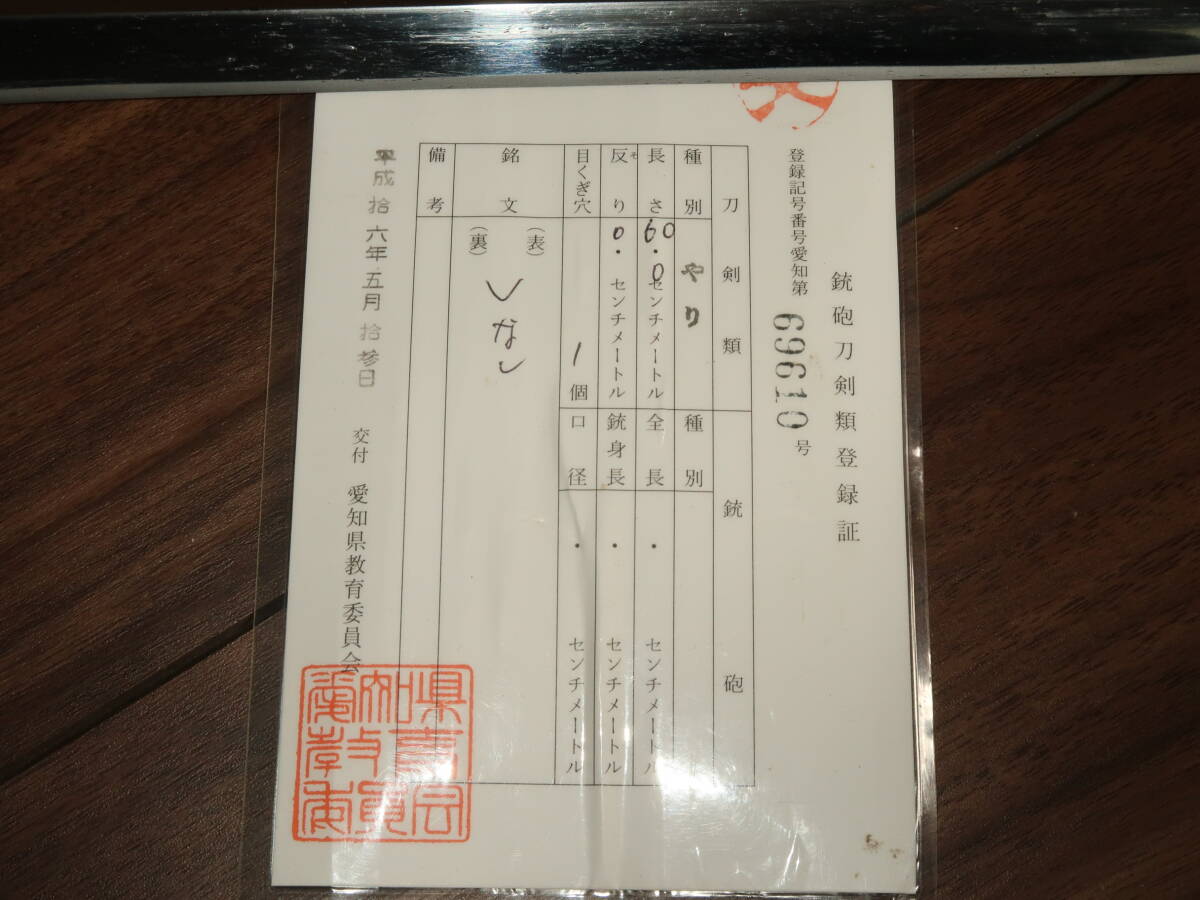 銃砲刀剣類登録証
登録記号番号愛知第69610号
刀剣類
銃砲
種別
やり
種別
長さ
60.0センチメートル
全長
.センチメートル
反り
そ
0.センチメートル
銃身長
.センチメートル
目くぎ穴
1個
口径
.センチメートル
銘文
(表)
(裏)
なし
備考
平成拾六年五月拾参日
交付
愛知県教育委員会